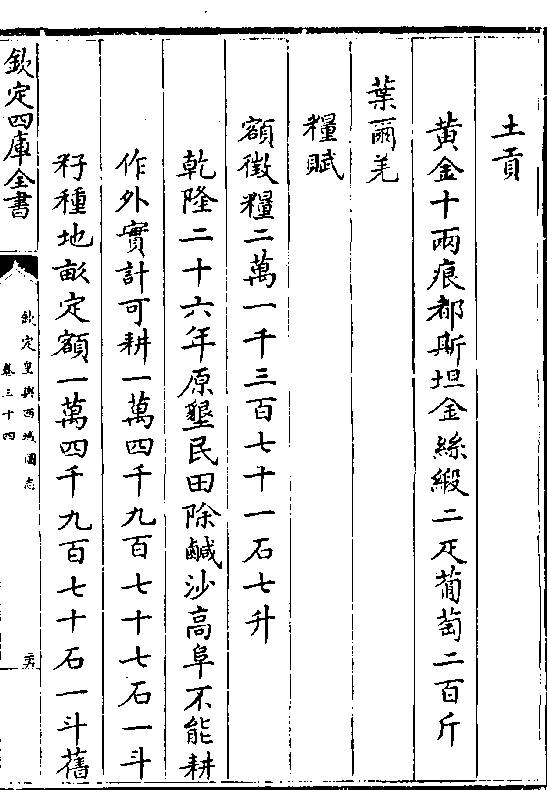 土貢
黄金十兩痕都斯坦金絲緞二疋葡萄二百斤
葉爾羌
糧賦
額徵糧二萬一千三百七十一石七升
乾隆二十六年原墾民田除鹹沙高阜不能耕
作外實計可耕一萬四千九百七十七石一斗
籽種地畝定額一萬四千九百七十石一斗舊
欽定四庫全書
欽定皇輿西域圖志
卷三十四